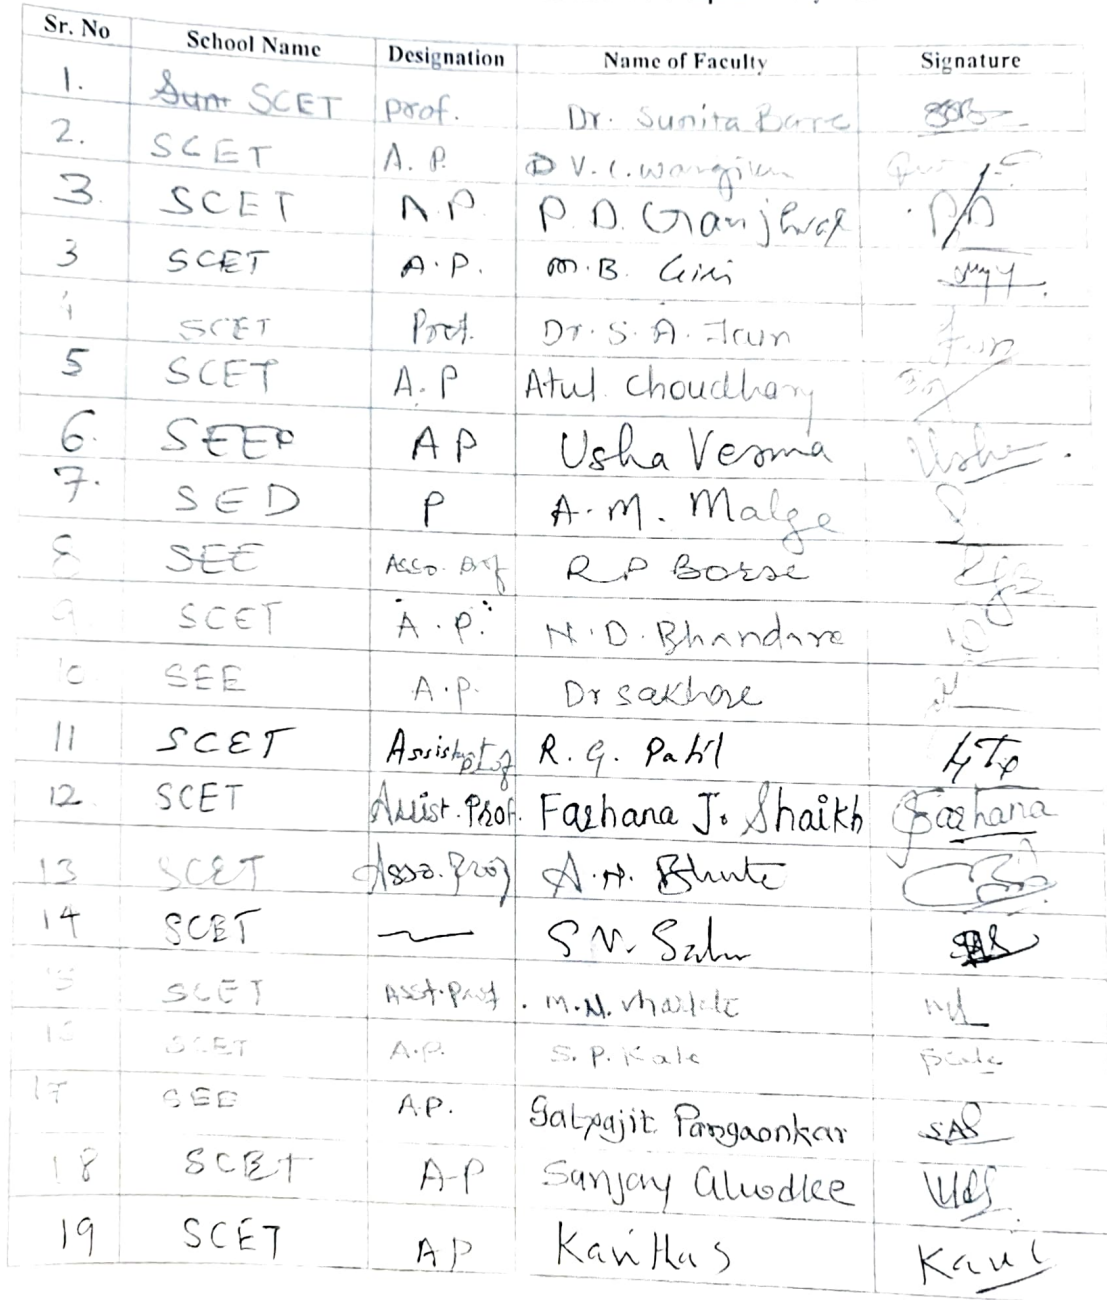 Sr. No School Name Designation Name of Faculty Signature
1. SCET prof. Dr. Sunita Bare
2. SCET A. P. D V. C. Wangikar
3. SCET A.P. P. D. Ganjewar
3 SCET A.P. M.B. Giri
4 SCET Prof. Dr. S. A.
5 SCET A. P Atul Choudhary
6. AP Usha Verma Usha
7. SED P A. M. Malge
8 SEE Asso. Prof R P Borse
9. SCET A. P. N. D. Bhandare
10 SEE A.P. Dr sakhare
11 SCET Assistant prof R. G. Patil
12. SCET Assist. Prof. Farhana J. Shaikh Farhana
13 SCET Asso. Prof A. N. Bhute
14 SCET S N.
15 SCET Asst. Prof. M. N.
16 SCET A.P. S. P. Kale
17 SEE A.P. Satyajit Pangaonkar SAS
18 SCET A-P Sanjay
19 SCET AP